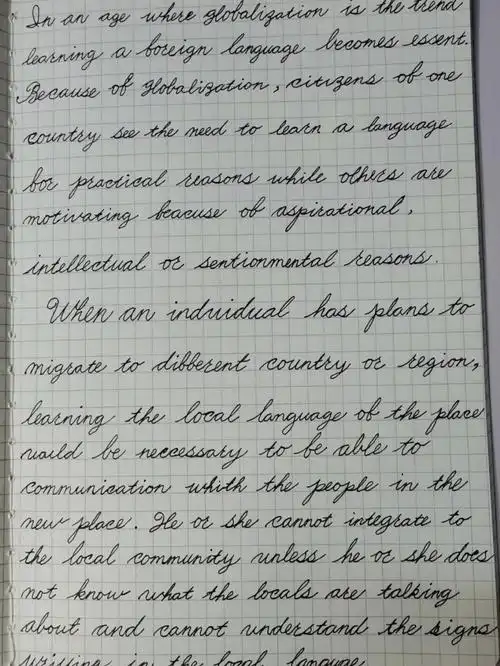 In an age where globalization is the trend
learning a foreign language becomes essent.
Because of globalization, citizens of one
country see the need to learn a language
for practical reasons while others are
motivating beacuse of aspirational,
intellectual or sentionmental reasons.
When an indvidual has plans to
migrate to different country or region,
learning the local language of the place
would be neccessary to be able to
communication whith the people in the
new place. He or she cannot integrate to
the local community unless he or she does
not know what the locals are talking
about and cannot understand the signs
in the local language